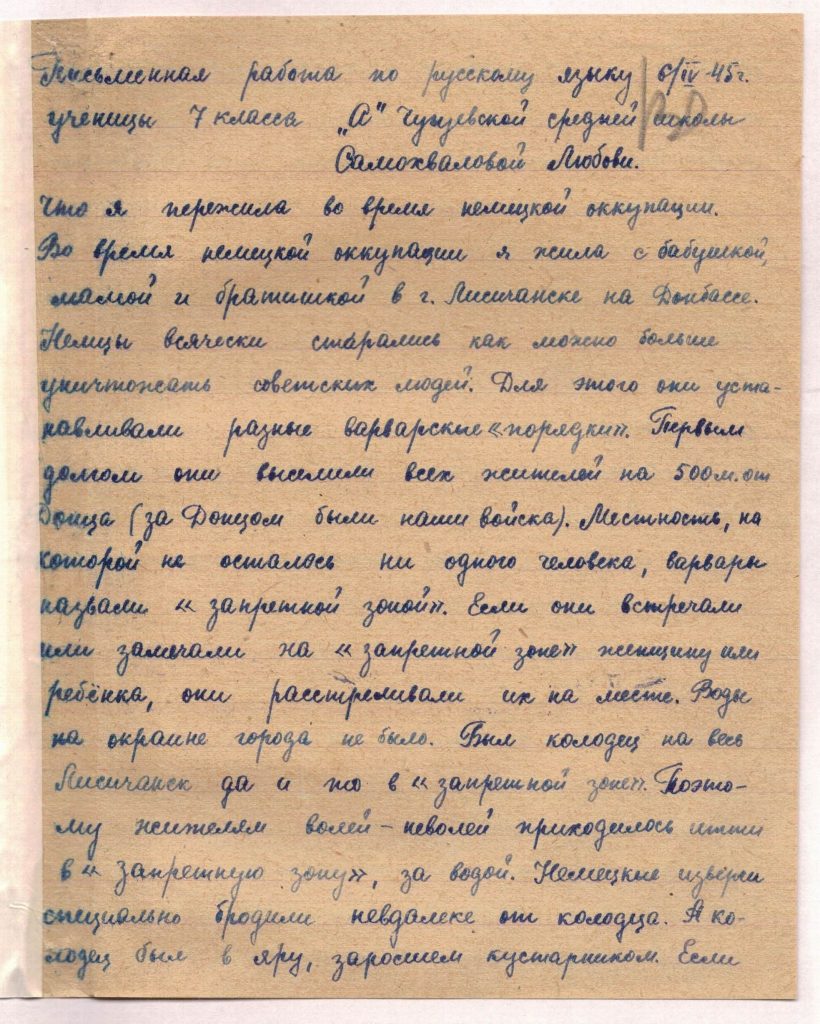 Письменная работа по русскому языку 6/IV-45г.
ученицы 7 класса "А" Чугуевской средней школы
Самохваловой Любови.
Что я пережила во время немецкой оккупации.
Во время немецкой оккупации я жила с бабушкой,
мамой и братишкой в г. Лисичанске на Донбассе.
Немцы всячески старались как можно больше
уничтожать советских людей. Для этого они уста-
навливали разные варварские «порядки». Первым
долгом они выселили всех жителей на 500м. от
Донца (за Донцом были наши войска). Местность, на
которой не осталось ни одного человека, варвары
назвали «запретной зоной». Если они встречали
или замечали на «запретной зоне» женщину или
ребёнка, они расстреливали их на месте. Воды
на окраине города не было. Был колодец на весь
Лисичанск да и то в «запретной зоне». Поэто-
му жителям волей-неволей приходилось итти
в «запретную зону», за водой. Немецкие изверги
специально бродили невдалеке от колодца. А ко-
лодец был в яру, заросшем кустарником. Если